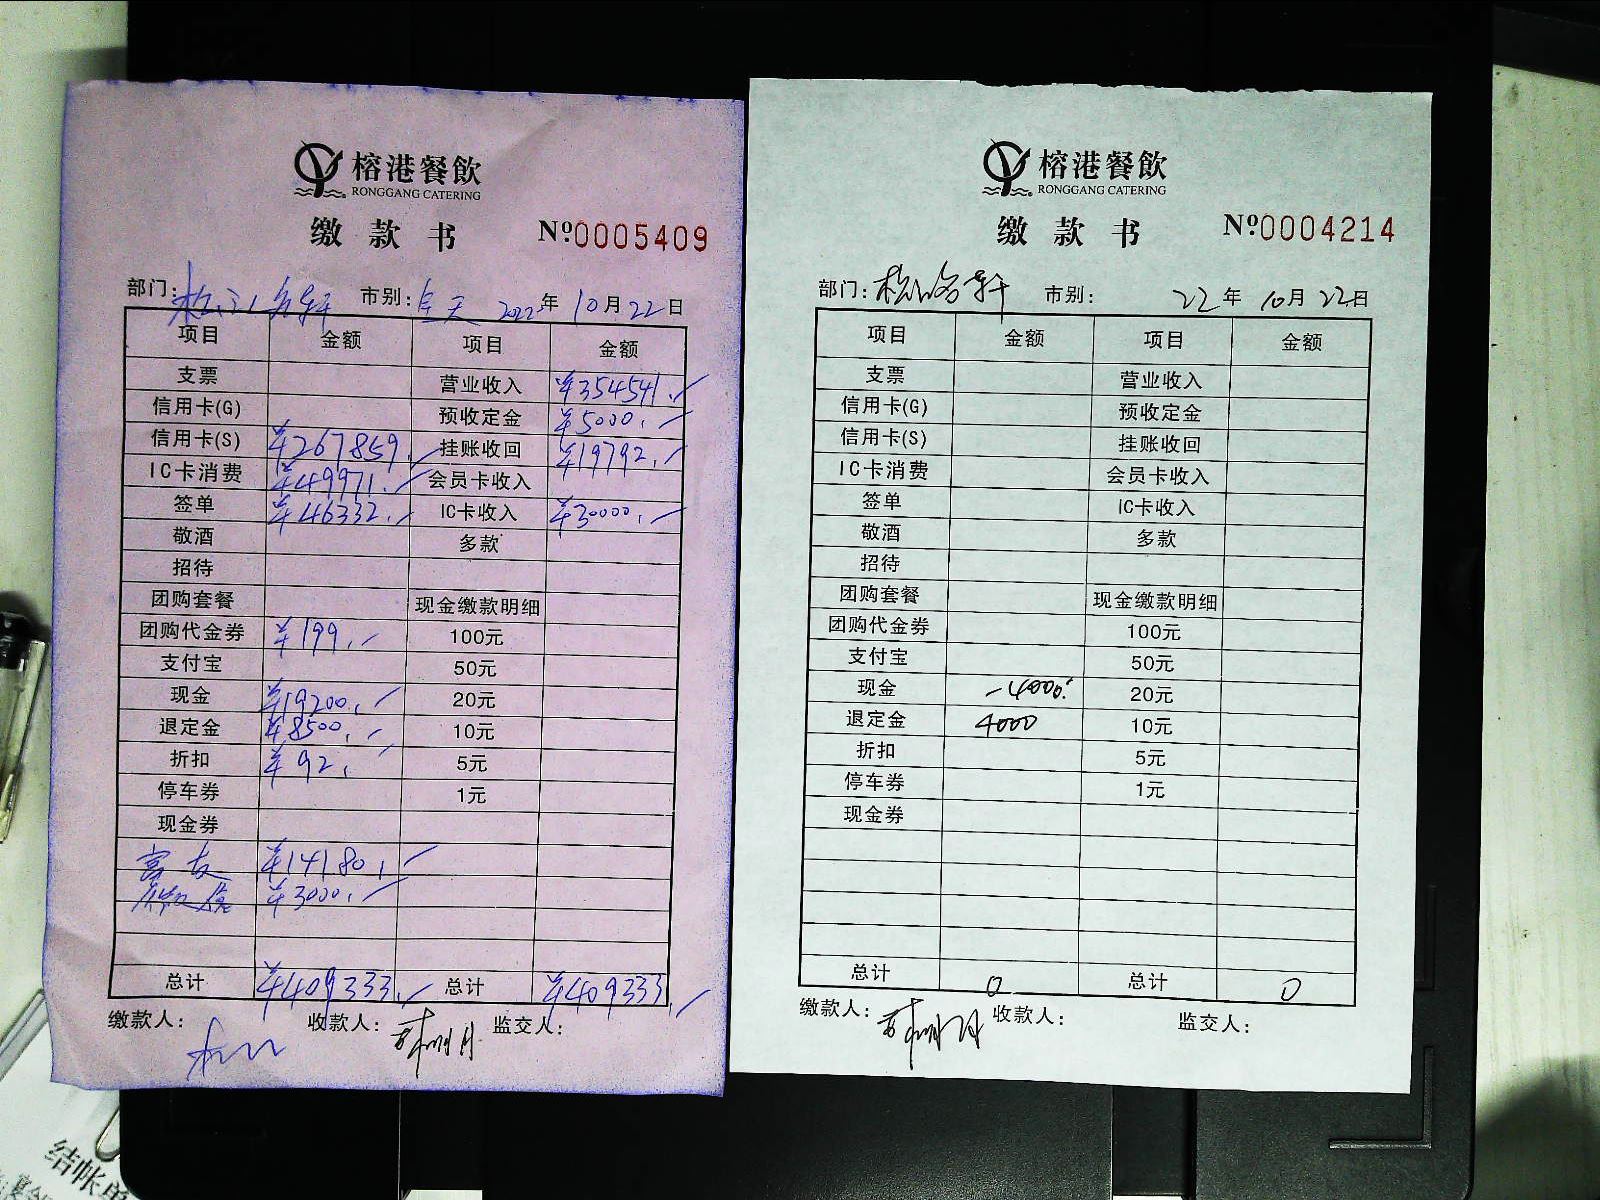 榕港餐飲
RONGGANG CATERING
缴款书 №0005409
部门: 市别: 全天 2022年10月22日
项目 金额 项目 金额
支票 营业收入 ¥354541.
信用卡(G) 预收定金 ¥5000.
信用卡(S) ¥267859. 挂账收回 ¥19792.
IC卡消费 ¥49971. 会员卡收入
签单 ¥46332. IC卡收入 ¥30000.
敬酒 多款
招待
团购套餐 现金缴款明细
团购代金券 ¥199. 100元
支付宝 50元
现金 ¥19200. 20元
退定金 ¥8500. 10元
折扣 ¥92. 5元
停车券 1元
现金券
富友 ¥14180.
¥3000.
总计 ¥409333. 总计 ¥409333.
缴款人: 收款人: 监交人:
榕港餐飲
RONGGANG CATERING
缴款书 №0004214
部门: 市别: 22年10月22日
项目 金额 项目 金额
支票 营业收入
信用卡(G) 预收定金
信用卡(S) 挂账收回
IC卡消费 会员卡收入
签单 IC卡收入
敬酒 多款
招待
团购套餐 现金缴款明细
团购代金券 100元
支付宝 50元
现金 -4000. 20元
退定金 4000 10元
折扣 5元
停车券 1元
现金券
总计 0 总计 0
缴款人: 收款人: 监交人:
结帐单